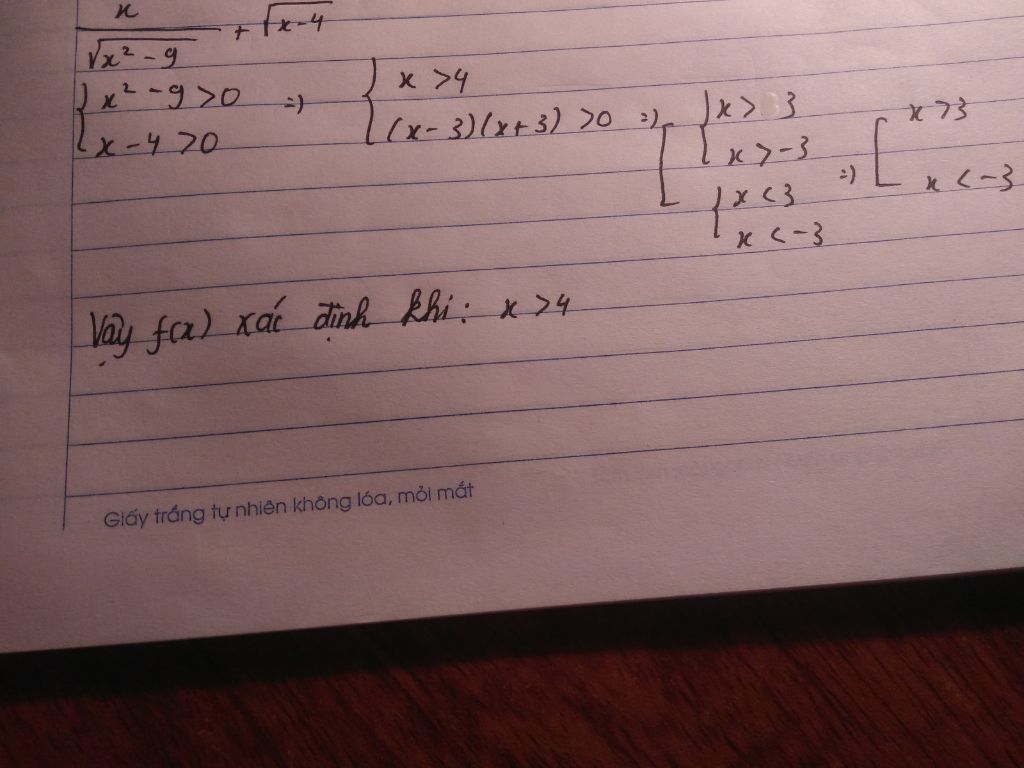 x / √(x² - 9) + √(x-4)
{ x² - 9 > 0 => { x > 4
x - 4 > 0 (x-3)(x+3) > 0 => [ { x > 3 => [ x > 3
x > -3 x < -3
{ x < 3
x < -3
Vậy f(x) xác định khi: x > 4
Giấy trắng tự nhiên không lóa, mỏi mắt